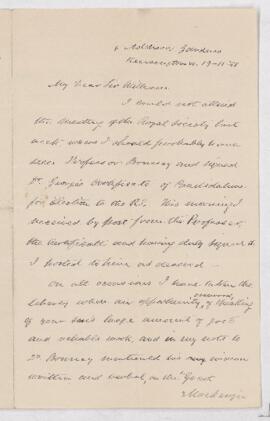 Gardens
Kensington W. 19-11-88
My Dear Sir William
I could not attend
the Meeting of the Royal Society last
week where I should probably have
seen Professor Bonney and signed
Dr. George's Certificate of Candidature
for election to the RS. This morning I
received by post from the Professor,
the Certificate and having duly signed it
I posted to him as desired —
On all occasions I have taken the
liberty when an opportunity occurred, of speaking
of your son's large amount of good
and valuable work, and in my note to
Dr. Bonney mentioned his
written and verbal, on the Great